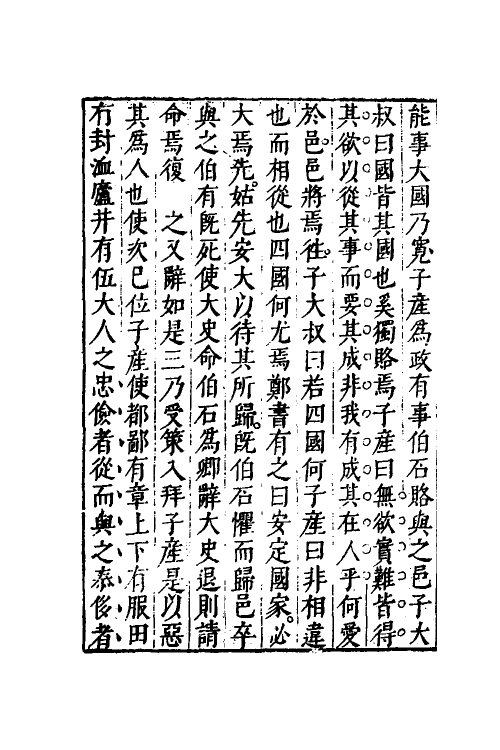 能事大國乃寬子產爲政有事伯石賂與之邑子大
叔曰國皆其國也奚獨賂焉子產曰無欲實難皆得
其欲以從其事而要其成非我有成其在人乎何愛
於邑邑將焉往子大叔曰若四國何子產曰非相違
也而相從也四國何尤焉鄭書有之曰安定國家必
大焉先姑先安大以待其所歸旣伯石懼而歸邑卒
與之伯有旣死使大史命伯石爲卿辭大史退則請
命焉復 之又辭如是三乃受策入拜子產是以惡
其爲人也使次巳位子產使都鄙有章上下有服田
有封洫廬井有伍大人之忠儉者從而與之泰侈者